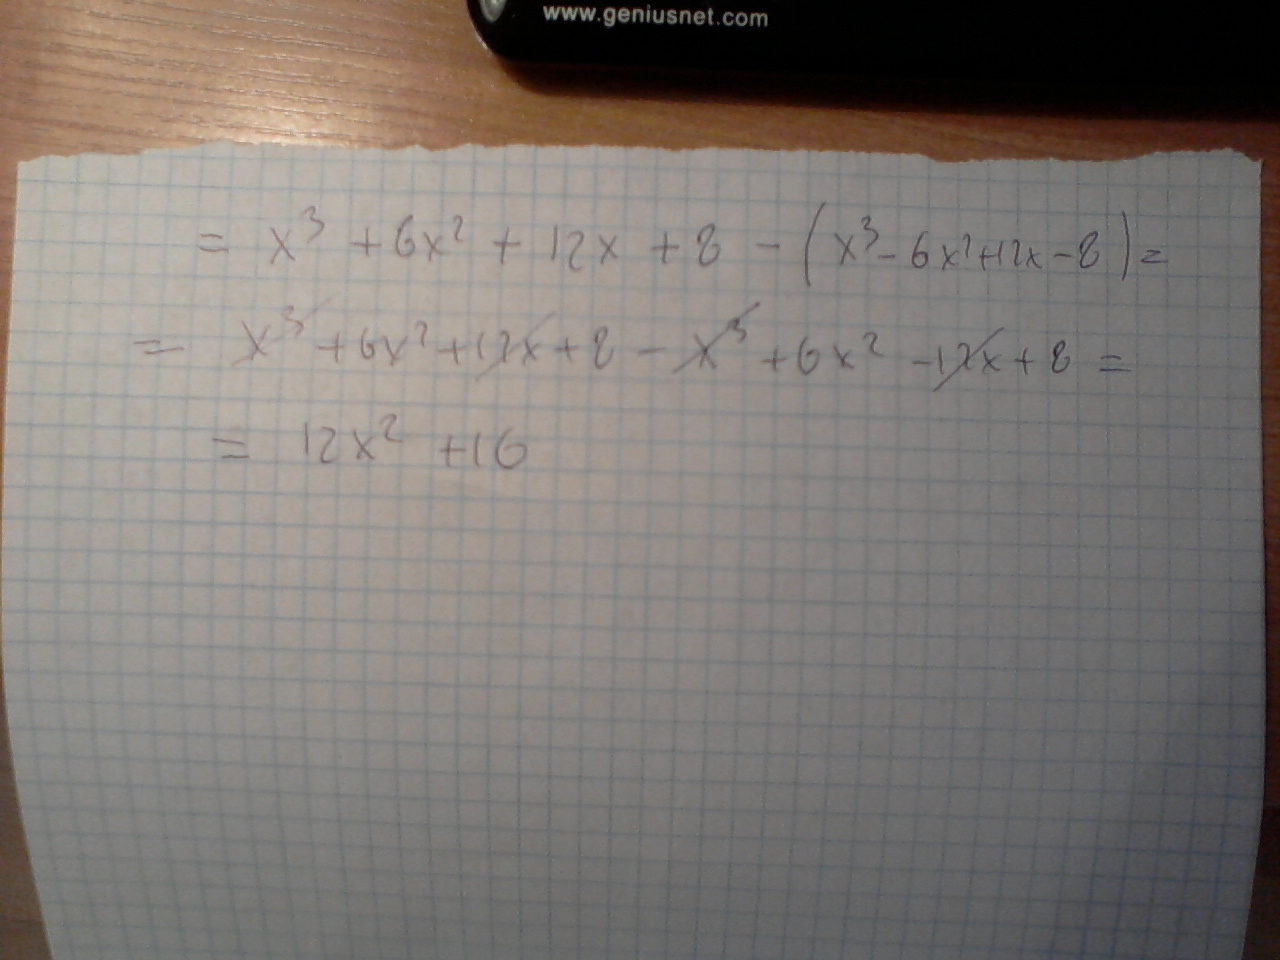 www.geniusnet.com
= x³ + 6x² + 12x + 8 - (x³ - 6x² + 12x - 8) =
= x³ + 6x² + 12x + 8 - x³ + 6x² - 12x + 8 =
= 12x² + 16